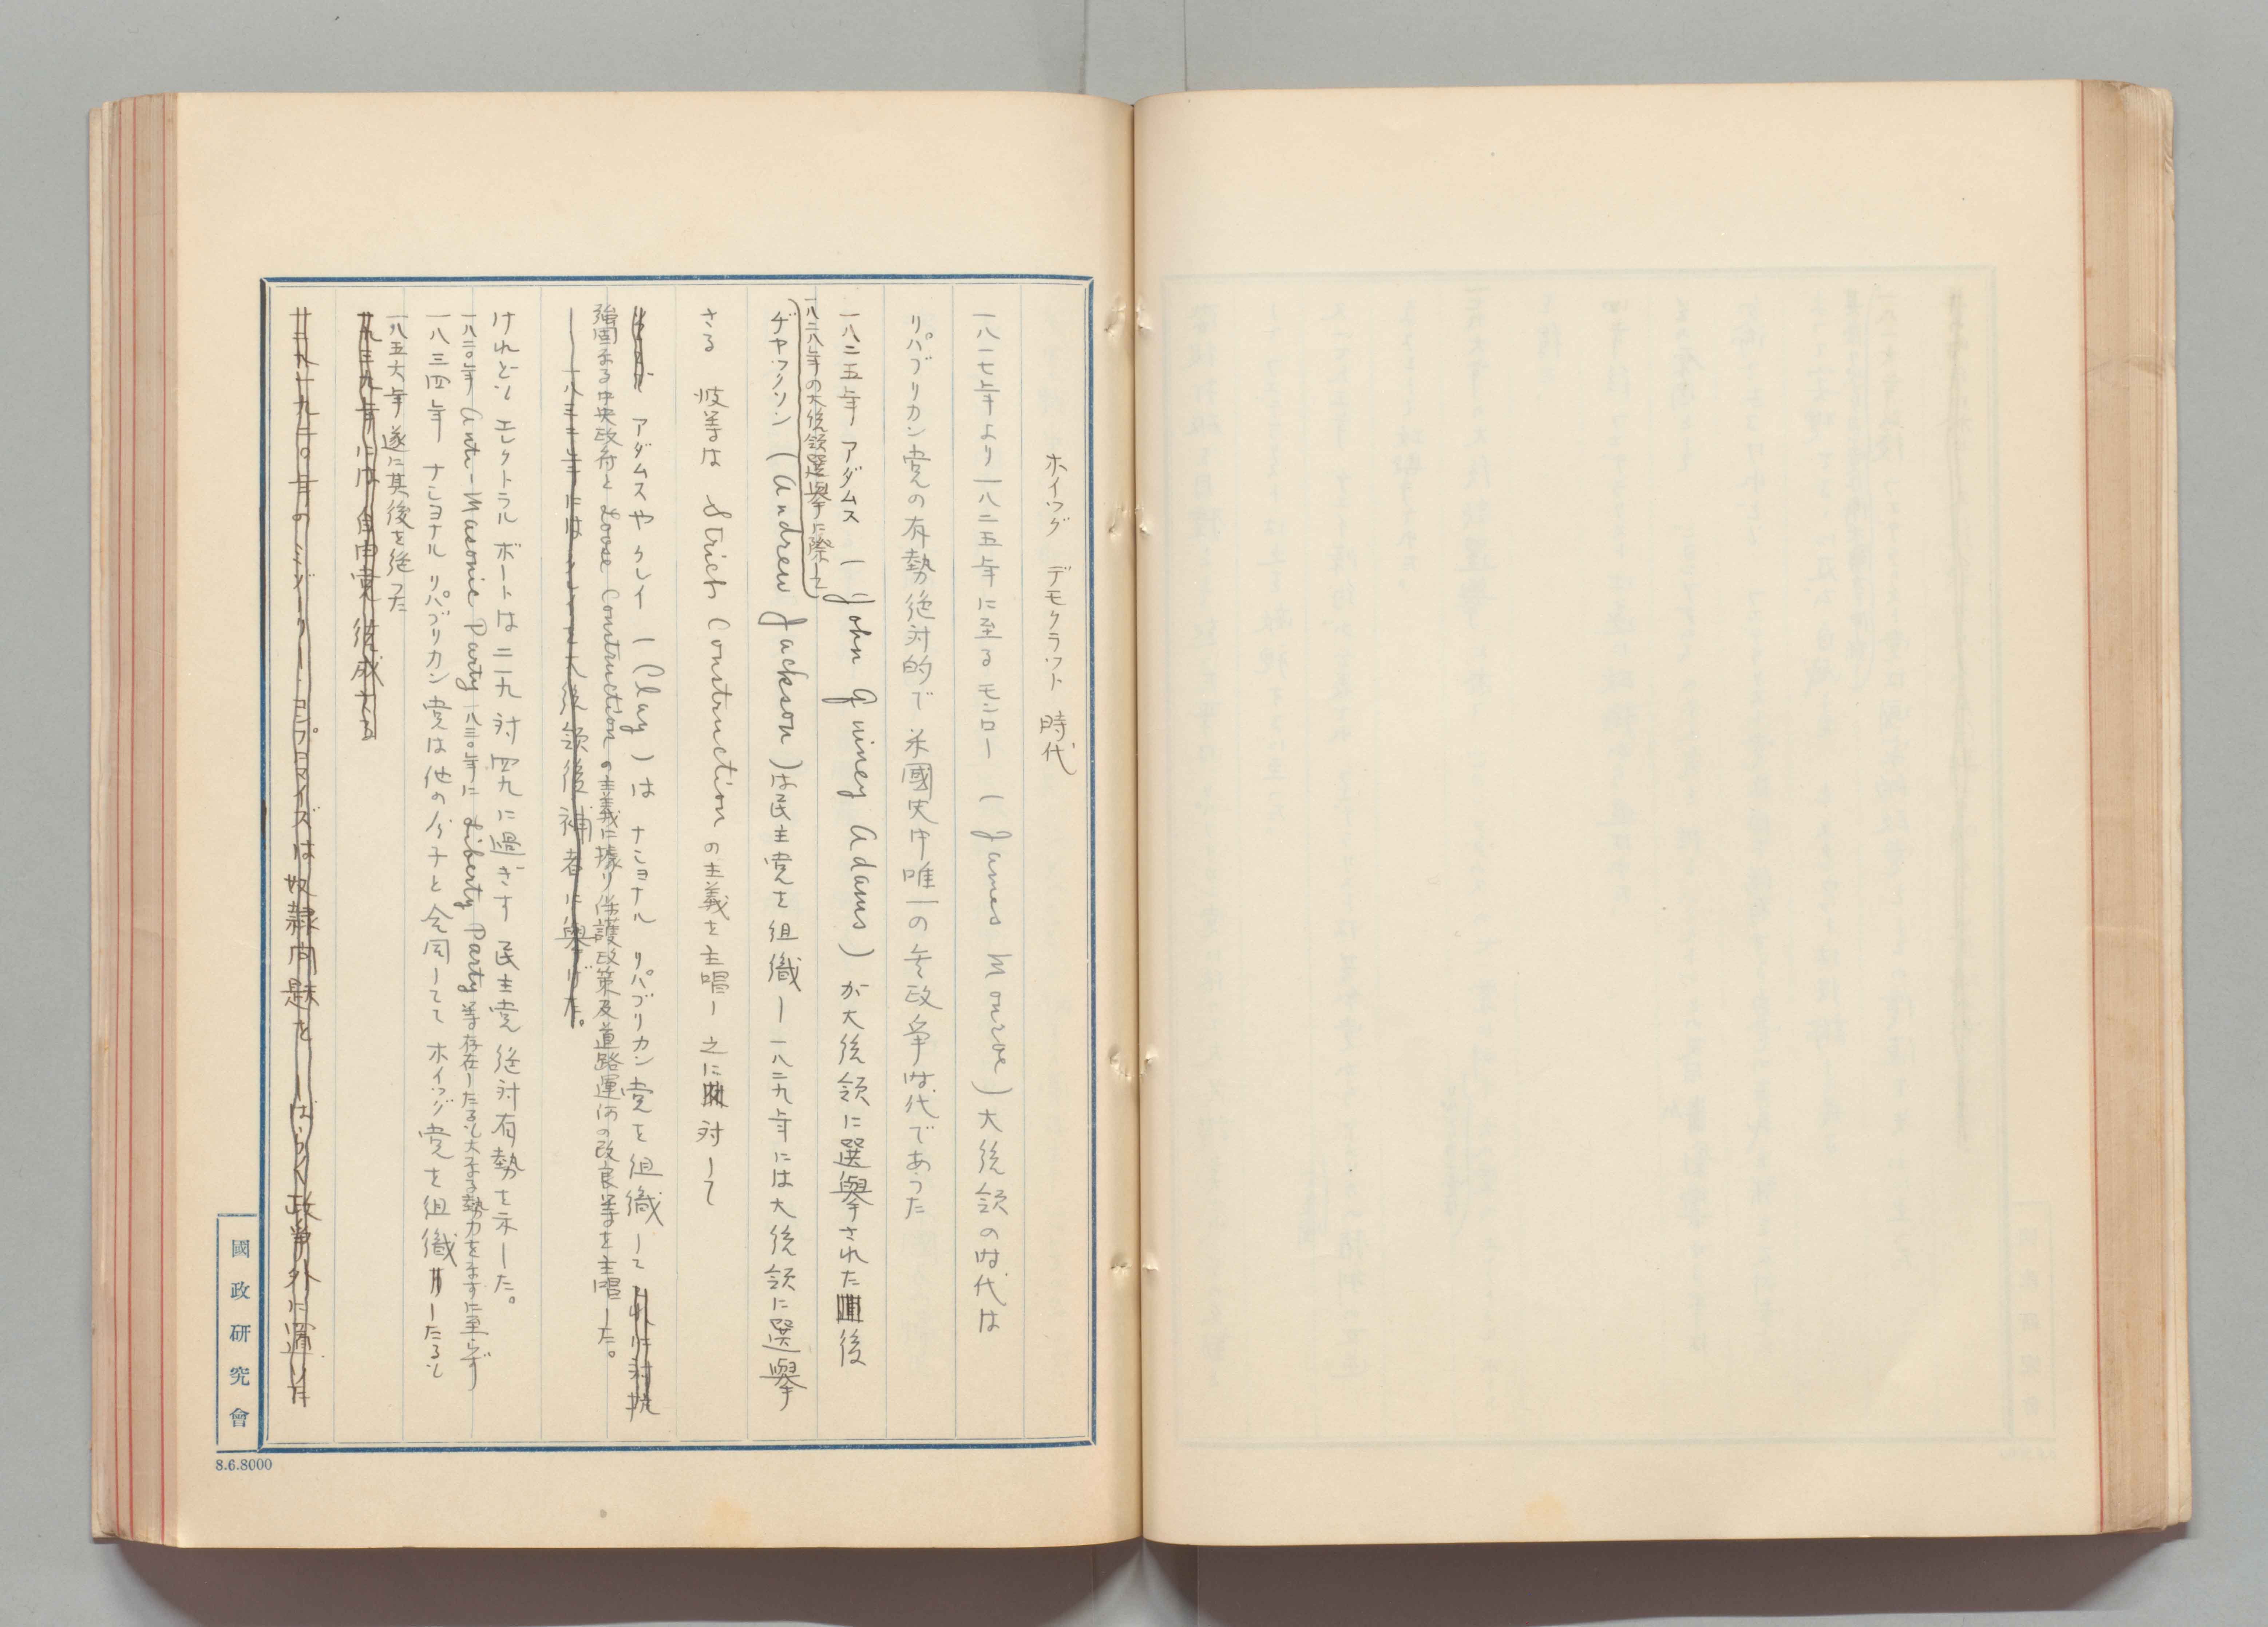 ホイッグ デモクラット 時代
一八一七年より一八二五年に至るモンロー (James Monroe) 大統領の時代は
リパブリカン党の有勢絶対的で米國史中唯一の無政争時代であった
一八二五年アダムス (John Quincy Adams) が大統領に選擧された後
一八二八年の大統領選擧に際して
ヂヤクソン (Andrew Jackson) は民主党を組織し一八二九年には大統領に選擧
さる 彼等は Strich Construction の主義を主唱し之に対して
アダムスやクレイ (Clay) はナショナル リパブリカン党を組織して これに対抗
強固なる中央政府と Loose Construction の主義に據り保護政策及道路運河の改良等を主唱した。
一八三二年には クレーを大統領候補者に擧げた。
けれども エレクトラル ボートは二一九対四九に過ぎず 民主党絶対有勢を示した。
一八三〇年 Anti-Masonic Party 一八三〇年に Liberty Party 等存在したるも大なる勢力をなすに至らず
一八三四年 ナショナル リパブリカン党は他の分子と合同して ホイッグ党を組織したるも
一八五六年 遂に其後を絶つた
一八三九年には 自由党 組成さる
一八二〇年のミゾーリー・コンプロマイズは奴隷問題を しばらく政争外に置いた
國政研究會
8.6.8000